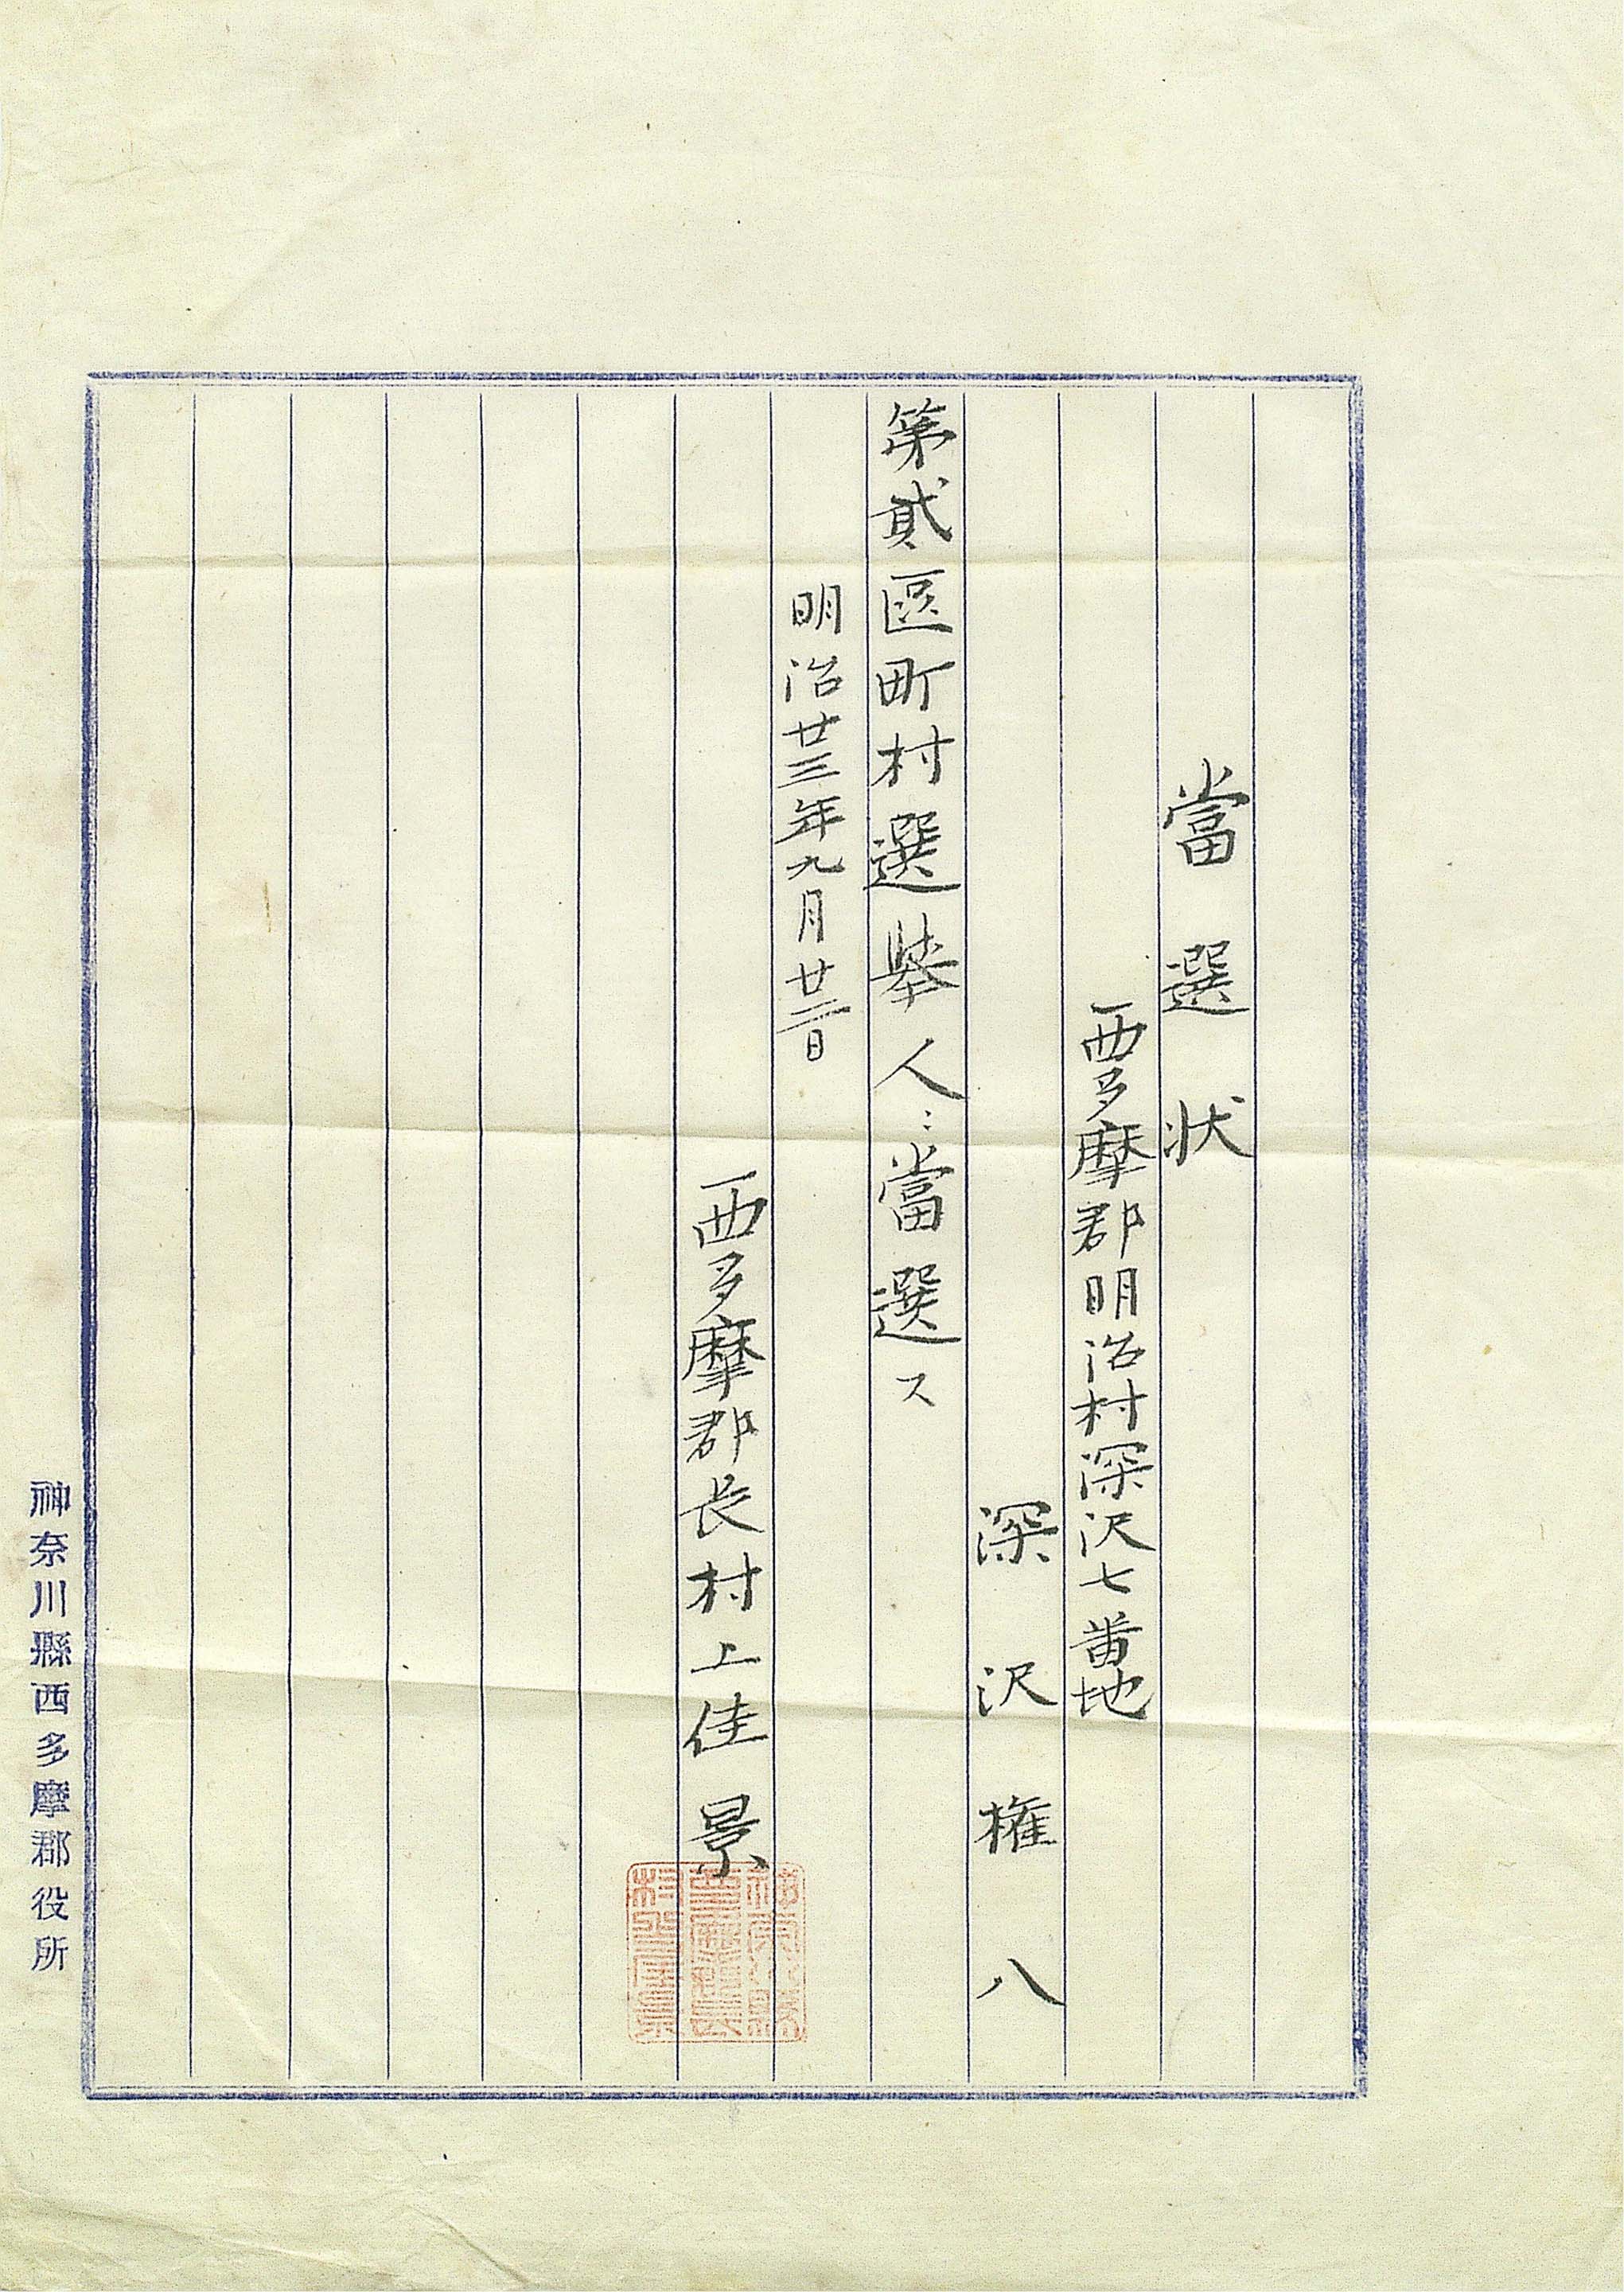 當選状
西多摩郡明治村深沢七番地
深沢権八
第貳區町村選挙人ニ當選ス
明治廿三年九月廿二日
西多摩郡長村上佳景
神奈川縣西多摩郡役所